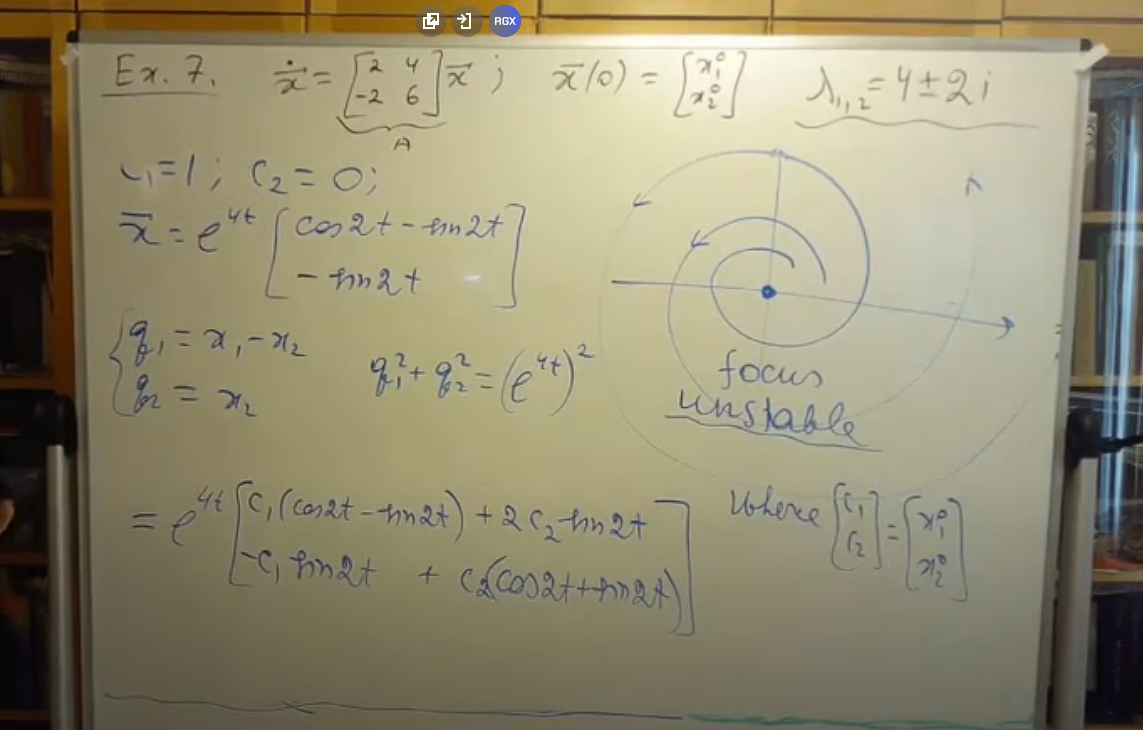 RGX
Ex. 7. ẋ = [2 4; -2 6] x̄ ; x̄(0) = [x₁⁰; x₂⁰] λ₁,₂ = 4 ± 2i
A
c₁ = 1 ; c₂ = 0;
x̄ = e^{4t} [cos2t - sin2t; - sin2t]
{q₁ = x₁ - x₂
q₂ = x₂
q₁² + q₂² = (e^{4t})²
focus
unstable
= e^{4t} [c₁(cos2t - sin2t) + 2c₂ sin2t; -c₁ sin2t + c₂(cos2t + sin2t)]
where [c₁; c₂] = [x₁⁰; x₂⁰]